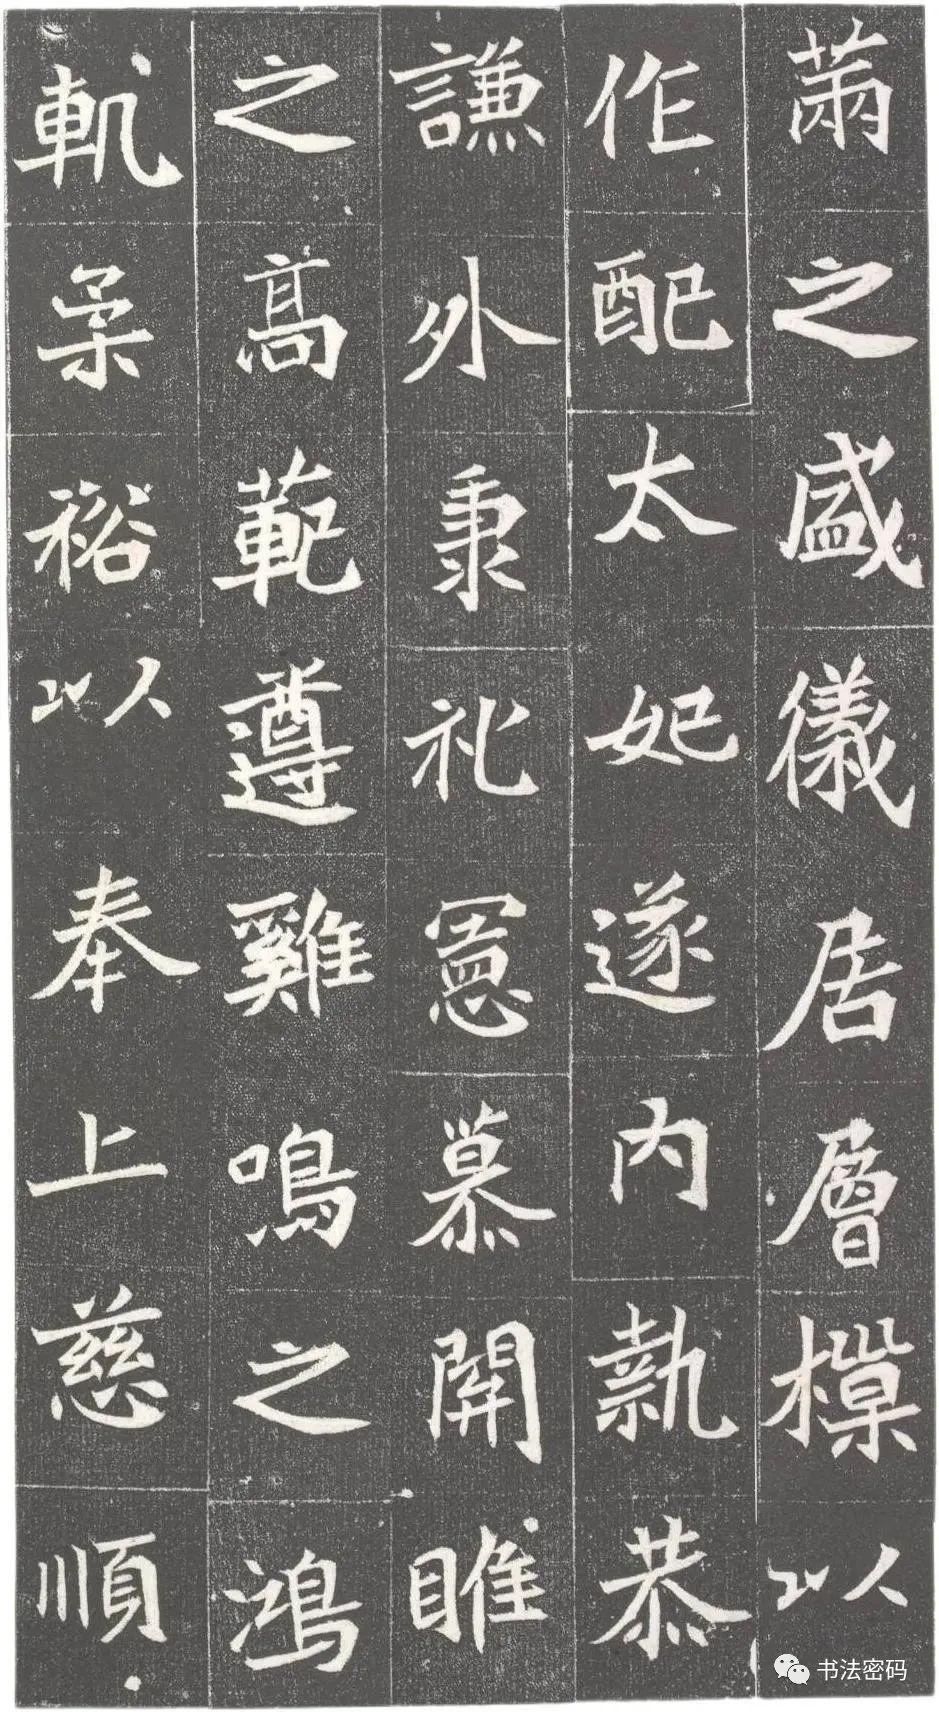 之盛儀居層以
作配太妃遂內執恭
謙外秉礼憲慕關雎
之高範遵雞鳴之鴻
軌柔裕以奉上慈順
书法密码